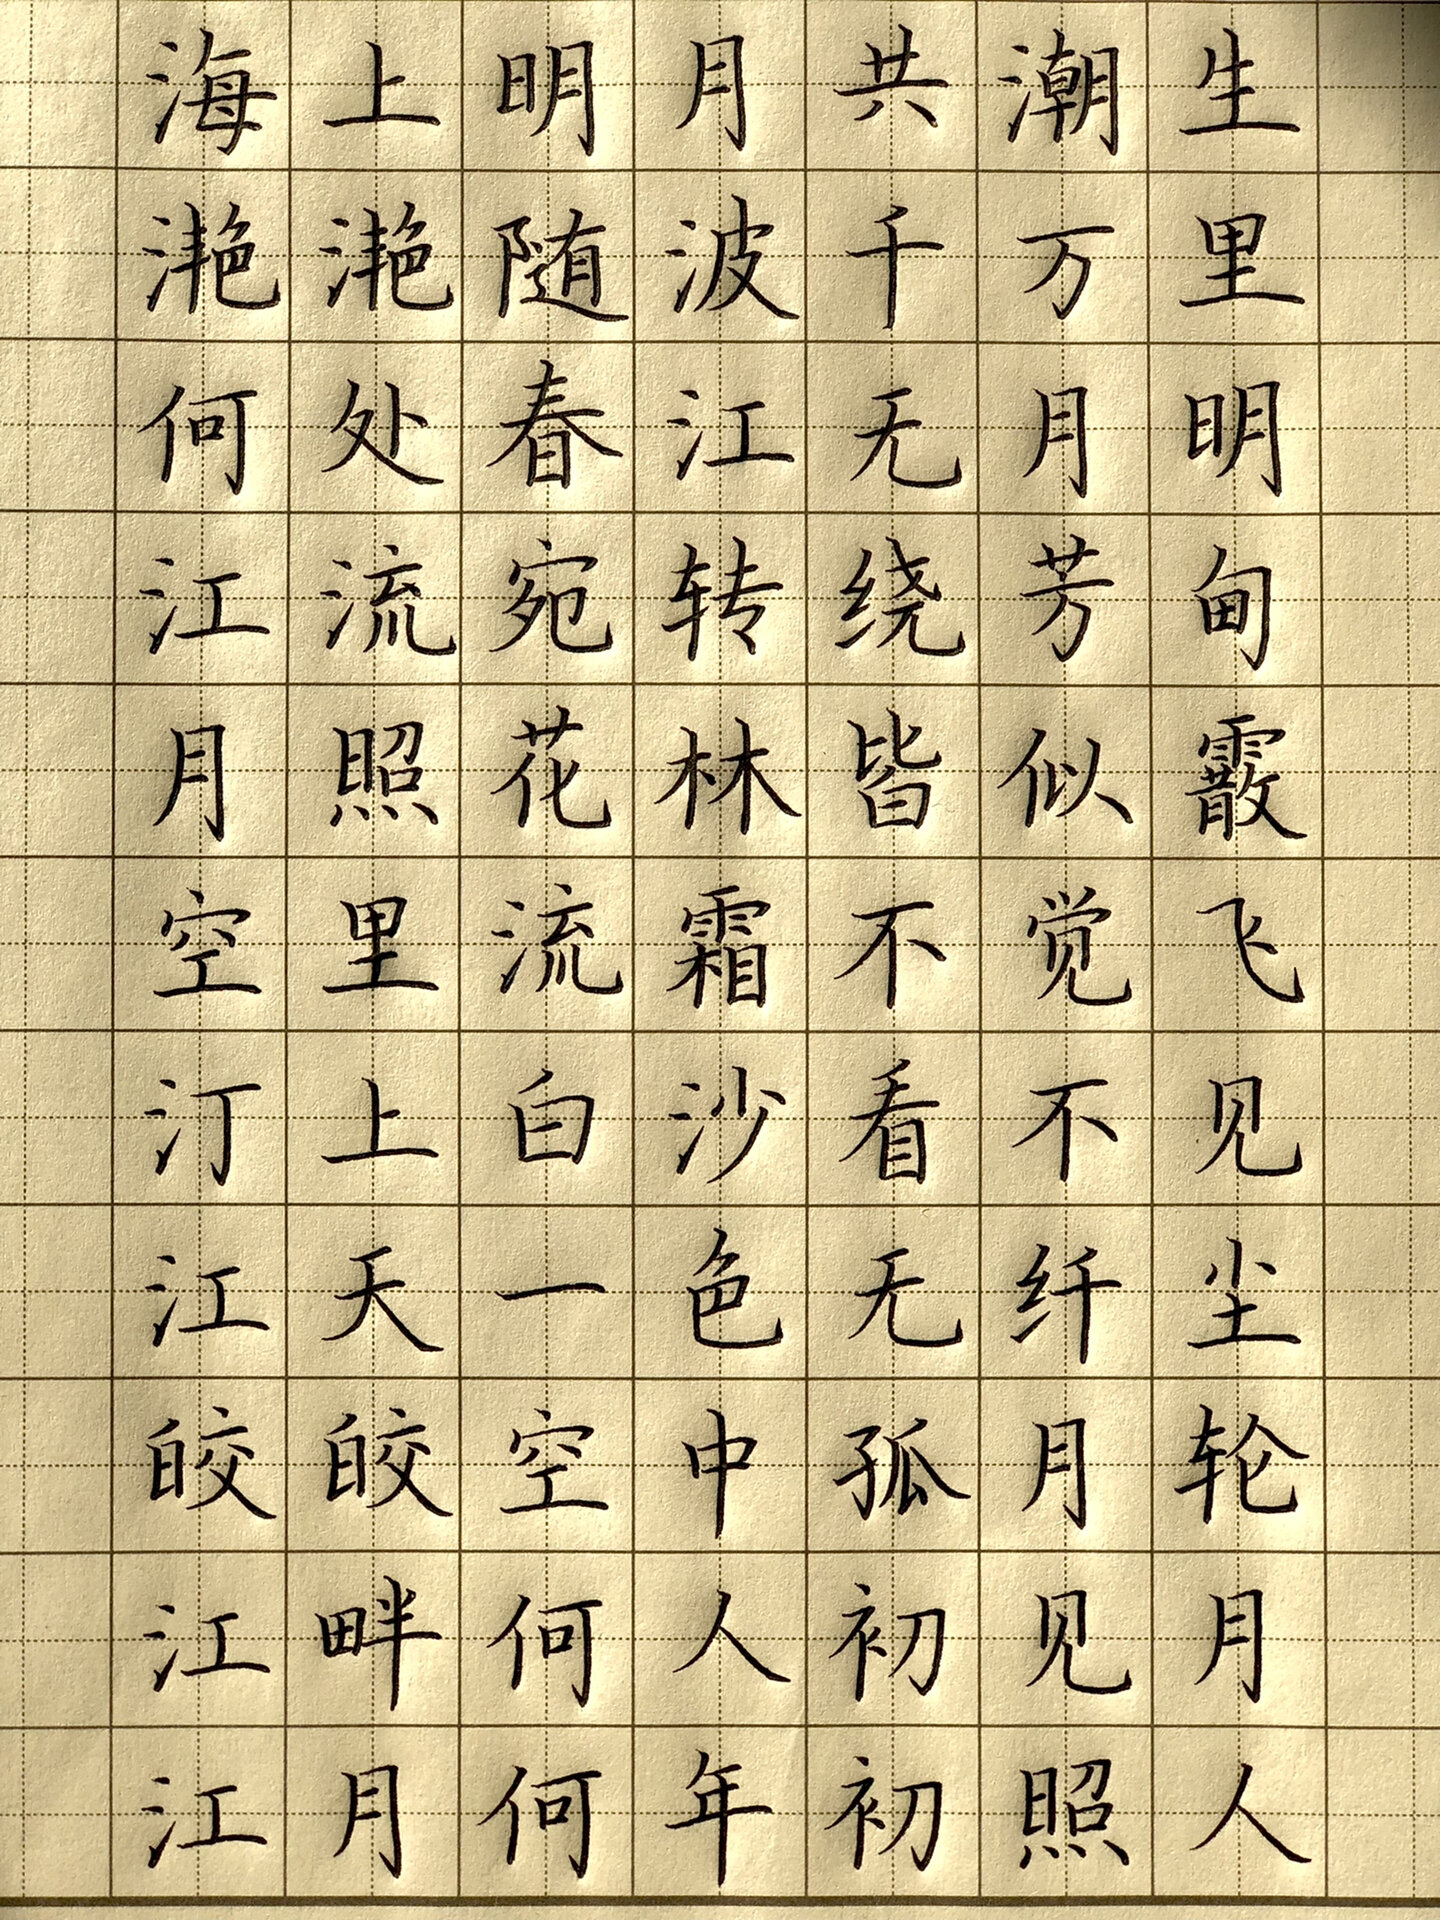 海上明月共潮生
滟滟随波千万里
何处春江无月明
江流宛转绕芳甸
月照花林皆似霰
空里流霜不觉飞
汀上白沙看不见
江天一色无纤尘
皎皎空中孤月轮
江畔何人初见月
江月何年初照人